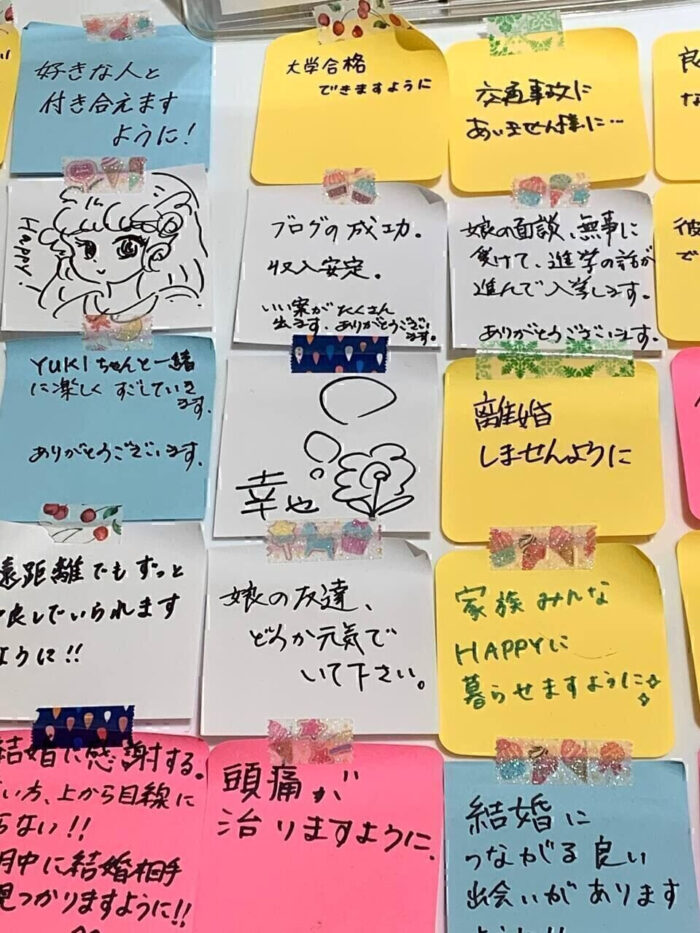 好きな人と
付き合えます
ように!
大学合格
できますように
交通事故に
あいません様に…
良
な
Happy!
ブログの成功。
収入安定。
いい案がたくさん
出ます。ありがとうござい
ます。
娘の面談、無事に
受けて、進学の話が
進んで入学します。
ありがとうございます。
彼
で
YUKIちゃんと一緒
に楽しくすごしていき
ます。
ありがとうございます。
幸せ
離婚
しませんように
遠距離でもずっと
仲良していられます
ように!!
娘の友達、
どうか元気で
いて下さい。
家族みんな
HAPPYに
暮らせますように
結婚に感謝する。
い方、上から目線に
らない!!
月中に結婚相手
見つかりますように!!
頭痛が
治りますように。
結婚に
つながる良い
出会いがあります
ように!!